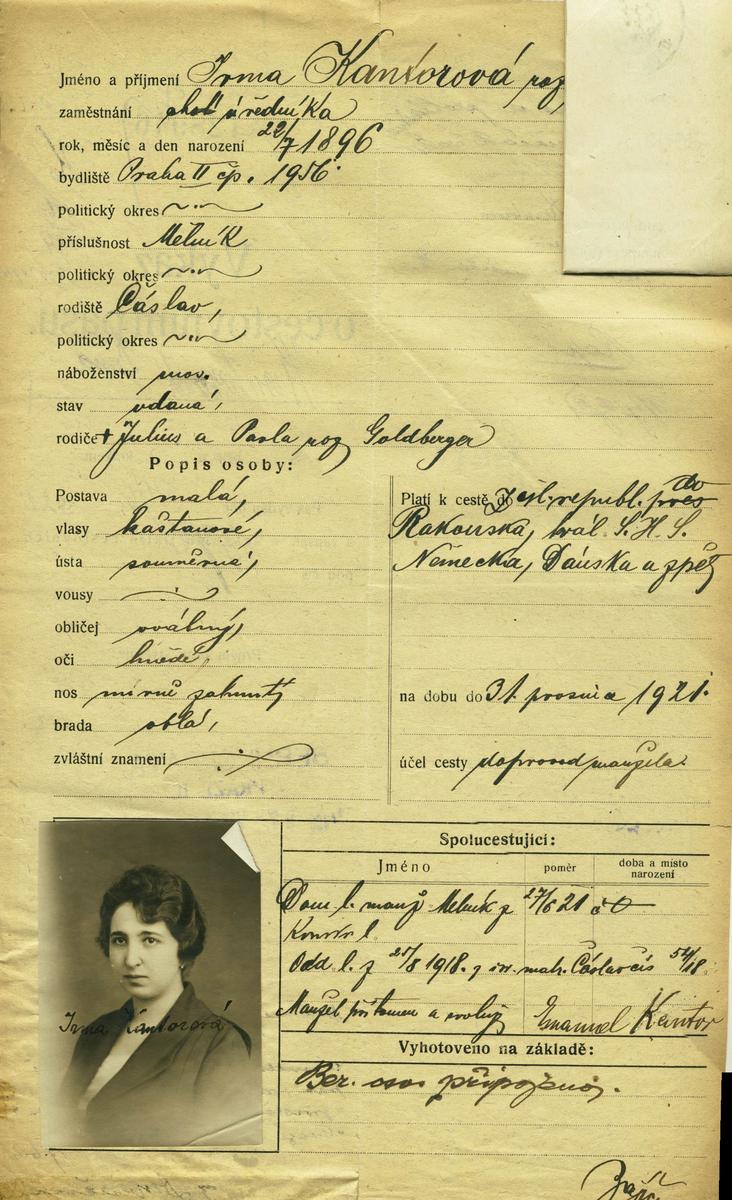 Jméno a příjmení Irma Kantorová roz.
zaměstnání choť úředníka
rok, měsíc a den narození 22/7 1896
bydliště Praha II čp. 1956.
politický okres
příslušnost Mělník
politický okres
rodiště Čáslav,
politický okres
náboženství mos.
stav vdaná,
rodiče + Julius a Pavla roz. Goldberger
Popis osoby:
Postava malá,
vlasy kaštanové,
ústa souměrná,
vousy
obličej oválný,
oči hnědé,
nos mírně zahnutý
brada oblá,
zvláštní znamení
Platí k cestě do čsl. republ. přes do
Rakouska, král. S. H. S.
Německa, Dánska a zpět
na dobu do 31. prosince 1921.
účel cesty doprovod manžela.
Spolucestující:
Jméno
poměr
doba a místo narození
Dom. l. manž. Mělník z 27/6 21
Odd. l. z 25/8 1918. z isr. mat. Čáslav čís
Manžel přítomen a svoluje Emanuel Kantor
Vyhotoveno na základě:
Ber. osv. připojeno.
Irma Kantorová